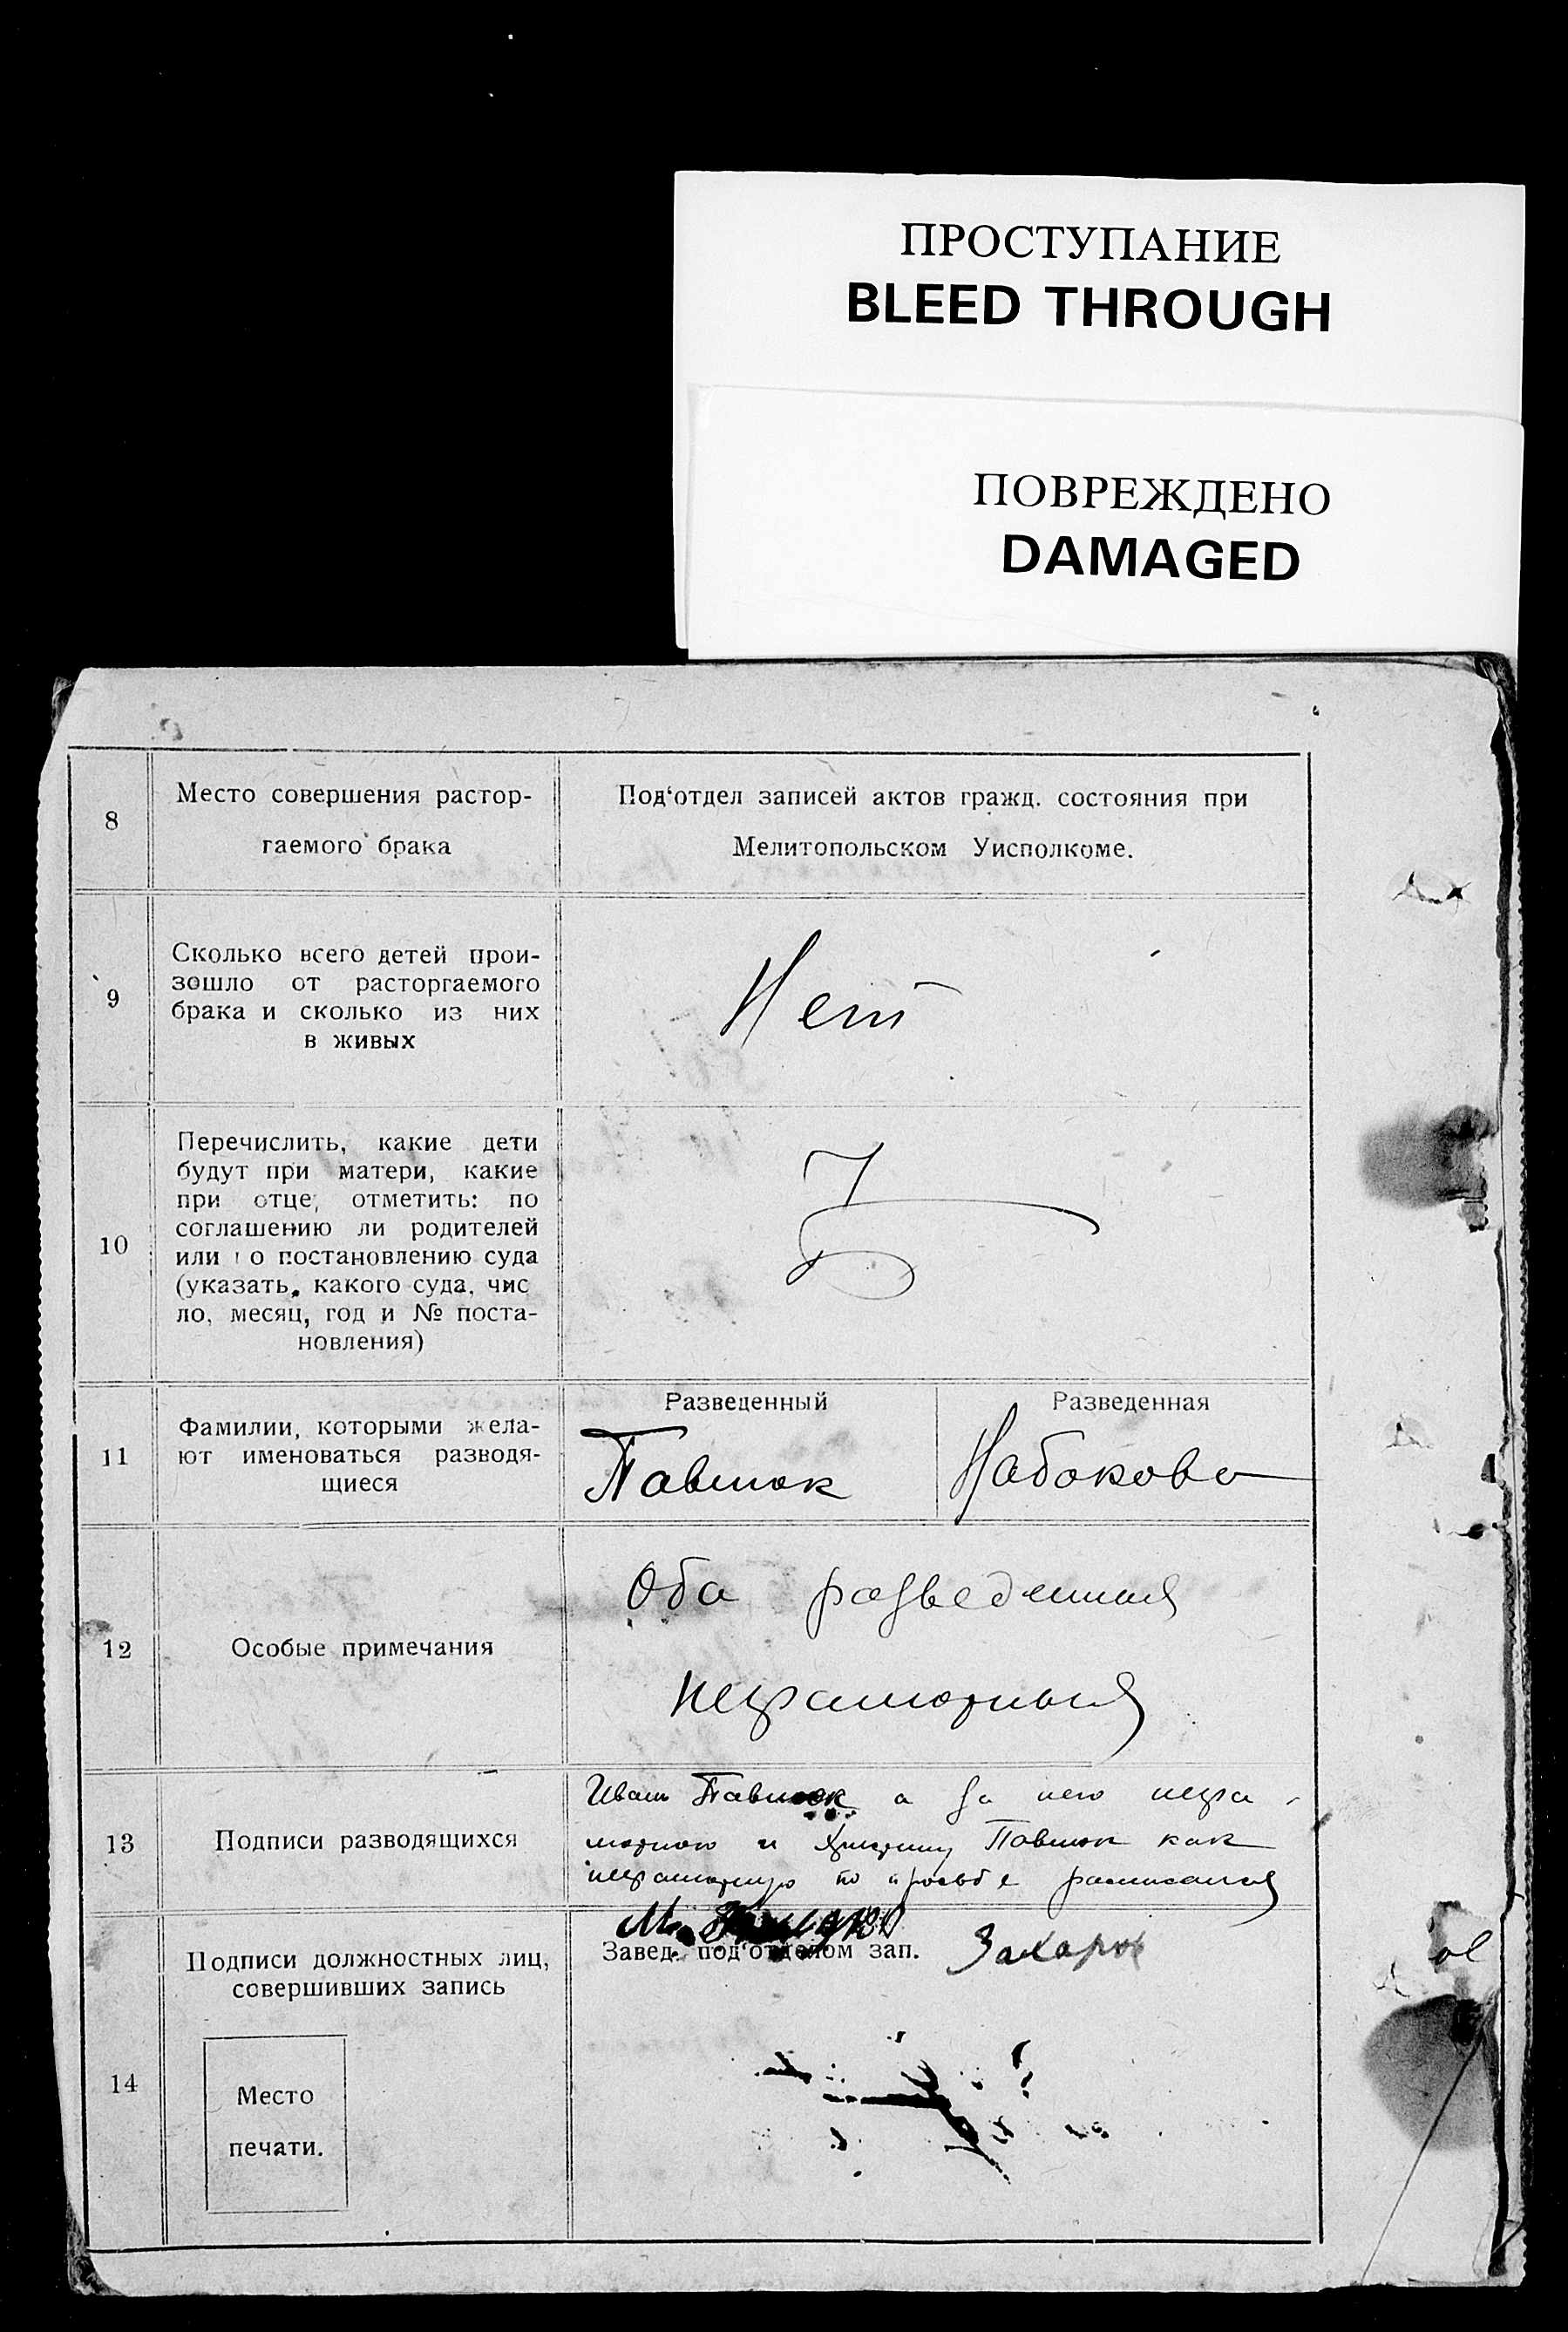 ПРОСТУПАНИЕ
BLEED THROUGH
ПОВРЕЖДЕНО
DAMAGED
8
Место совершения растор-
гаемого брака
Под‘отдел записей актов гражд. состояния при
Мелитопольском Уисполкоме.
9
Сколько всего детей прои-
зошло от расторгаемого
брака и сколько из них
в живых
Нет
10
Перечислить, какие дети
будут при матери, какие
при отце, отметить: по
соглашению ли родителей
или о постановлению суда
(указать, какого суда, чис
ло, месяц, год и № поста-
новления)
11
Фамилии, которыми жела-
ют именоваться разводя-
щиеся
Разведенный
Павлюк
Разведенная
Набокова
12
Особые примечания
Оба разведенныя
неграмотныя
13
Подписи разводящихся
Иван Павлюк а за него негра-
мотного и Павлюк как
неграмотную по просьбе расписался
14
Подписи должностных лиц,
совершивших запись
Завед. под‘отделом зап. Захаров
Место
печати.